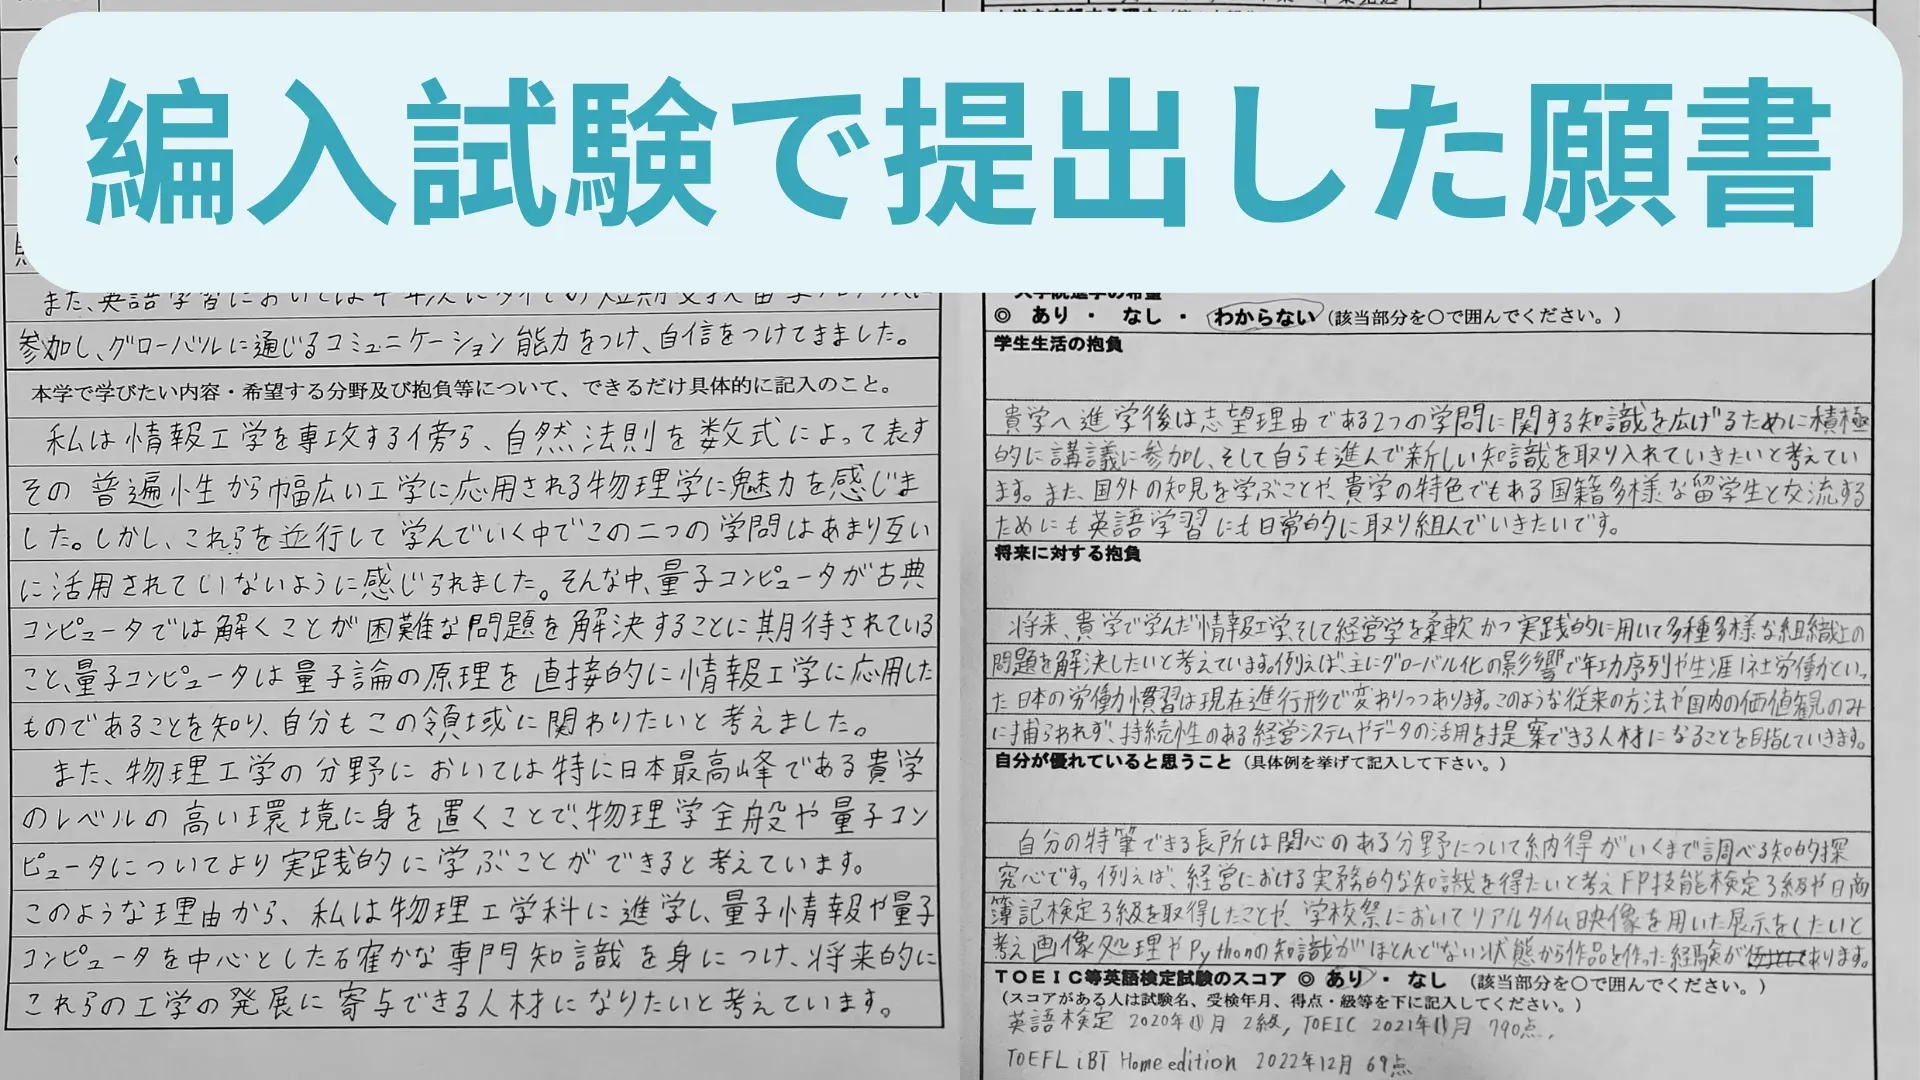 編入試験で提出した願書
また、英語学習においては
参加し、グローバルに通じるコミュニケーション能力をつけ、自信をつけてきました。
本学で学びたい内容・希望する分野及び抱負等について、できるだけ具体的に記入のこと。
私は情報工学を専攻する傍ら、自然法則を数式によって表す
その普遍性から幅広い工学に応用される物理学に魅力を感じま
した。しかし、これらを並行して学んでいく中でこの二つの学問はあまり互い
に活用されていないように感じられました。そんな中、量子コンピュータが古典
コンピュータでは解くことが困難な問題を解決することに期待されている
こと、量子コンピュータは量子論の原理を直接的に情報工学に応用した
ものであることを知り、自分もこの領域に関わりたいと考えました。
また、物理工学の分野においては特に日本最高峰である貴学
のレベルの高い環境に身を置くことで、物理学全般や量子コン
ピュータについてより実践的に学ぶことができると考えています。
このような理由から、私は物理工学科に進学し、量子情報や量子
コンピュータを中心とした確かな専門知識を身につけ、将来的に
これらの工学の発展に寄与できる人材になりたいと考えています。
◎ あり ・ なし ・ わからない（該当部分を○で囲んでください。）
学生生活の抱負
貴学へ進学後は志望理由である2つの学問に関する知識を広げるために積極
的に講義に参加し、そして自らも進んで新しい知識を取り入れていきたいと考えてい
ます。また、国外の知見を学ぶことや、貴学の特色でもある国籍多様な留学生と交流する
ためにも英語学習にも日常的に取り組んでいきたいです。
将来に対する抱負
将来、貴学で学んだ情報工学、そして経営学を柔軟かつ実践的に用いて多種多様な組織上の
問題を解決したいと考えています。例えば、主にグローバル化の影響で年功序列や生涯1社労働といっ
た日本の労働慣習は現在進行形で変わりつつあります。このような従来の方法や国内の価値観のみ
に捕らわれず、持続性のある経営システムやデータの活用を提案できる人材になることを目指していきます。
自分が優れていると思うこと（具体例を挙げて記入して下さい。）
自分の特筆できる長所は関心のある分野について納得がいくまで調べる知的探
究心です。例えば、経営における実務的な知識を得たいと考えFP技能検定3級や日商
簿記検定3級を取得したことや、学校祭においてリアルタイム映像を用いた展示をしたいと
考え画像処理やPythonの知識がほとんどない状態から作品を作った経験があります。
TOEIC等英語検定試験のスコア ◎ あり ・ なし （該当部分を○で囲んでください。）
（スコアがある人は試験名、受検年月、得点・級等を下に記入してください。）
英語検定 2020年 月 2級, TOEIC 2021年 月 790点,
TOEFL iBT Home edition 2022年12月 69点